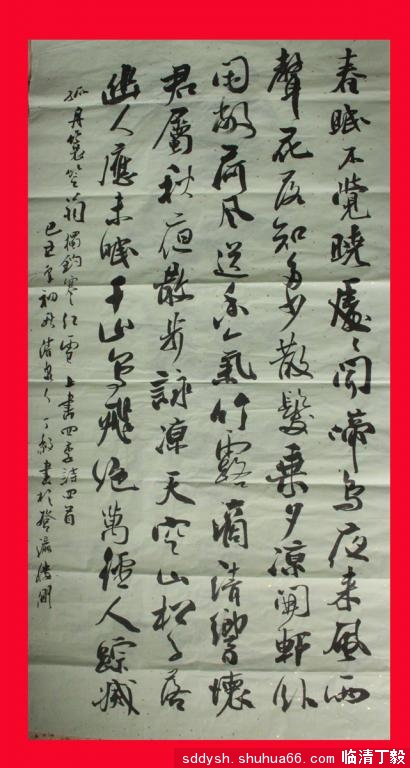 春眠不覺曉處々聞啼鳥夜来風雨
聲花落知多少散髮乘夕凉開軒卧
閑敞荷風送香氣竹露滴清響懷
君屬秋夜散步詠凉天空山松子落
幽人應未眠千山鳥飛絶萬徑人踪滅
孤舟簑笠翁獨釣寒江雪上書四季詩四首
己丑年初秋清泉人丁毅書於登瀛
sddysh.shuhua66.com 临清丁毅